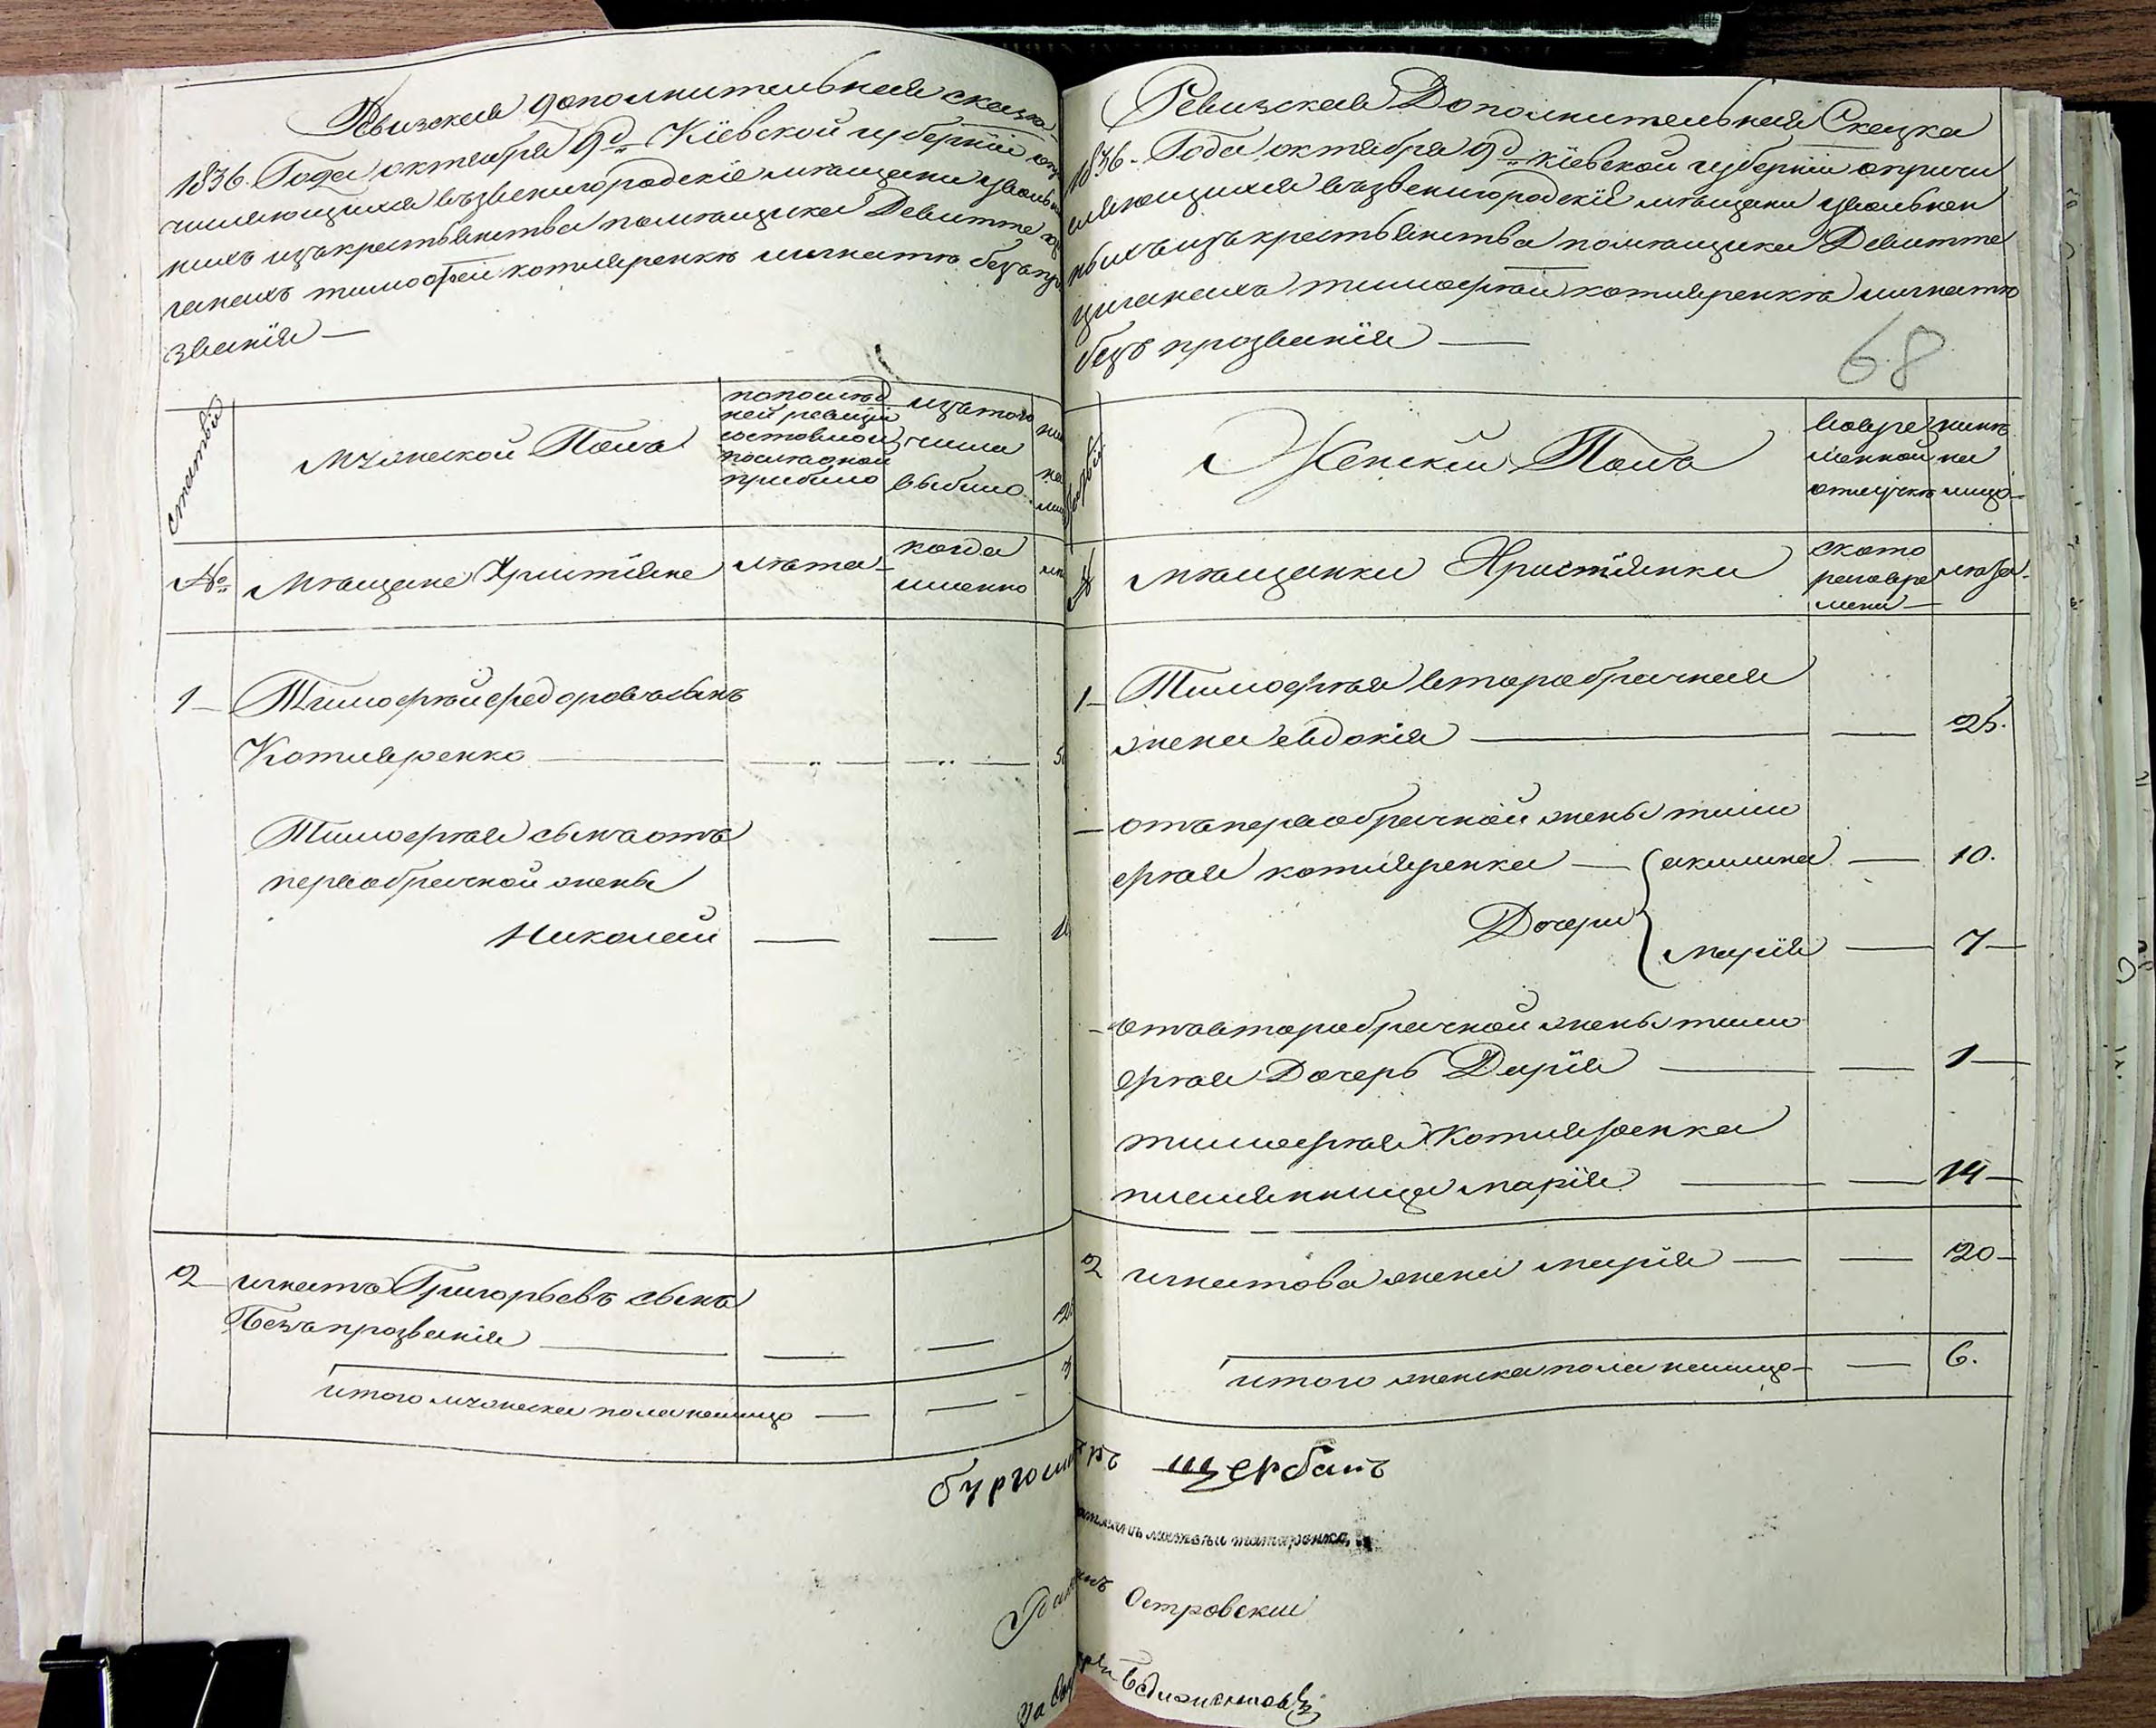 Ревизская дополнительная сказка
1836. Года октября 9д Кіевской губерніи
числяющихся въ звенигородскіе мѣщани уволь
ныхъ изъ крестьянства помѣщика Девитте
ганахъ тимофей котляренкѣ игнатѣ безъ про
званія —
статьи
мужеской Полъ
по послѣд
ней ревизіи
состояло и
послѣ оной
прибыло
изъ того
числа
выбыло
№
Мѣщане Христіяне
лѣта
когда
именно
1 Тимофѣй федоровъ сынъ
Котляренко
Тимофѣя сынъ отъ
первобрачной жены
Николай
2 игнатъ Григорьевъ сынъ
Безъ прозванія
3
итого мужеска пола налицо
бургоми
Ревизская Дополнительная Сказка
1836. Года октября 9д кіевской губерніи опричи
сляющихся въ звенигородскіе мѣщани уволен
ныхъ изъ крестьянства помѣщика Девитте
циганахъ тимофѣи котляренкѣ игнатѣ
безъ прозванія —
68
Женскій Полъ
во вре
менной
отлучкѣ
нынѣ
на
лицо
№
мѣщанки Христіянки
с кото
раго вре
мени
лѣта
1 Тимофѣя второбрачная
жена евдокія 25.
— отъ первобрачной жены тимо
фѣя котляренка — акилина 10.
Дочери
марія 7
— отъ второбрачной жены тимо
фѣя Дочерь Дарія 1
тимофѣя Котляренка
племянница марія 14
2 игнатова жена марія 20
итого женска пола налицо 6.
тръ щербанъ
матвѣи татаренко
Островскіи